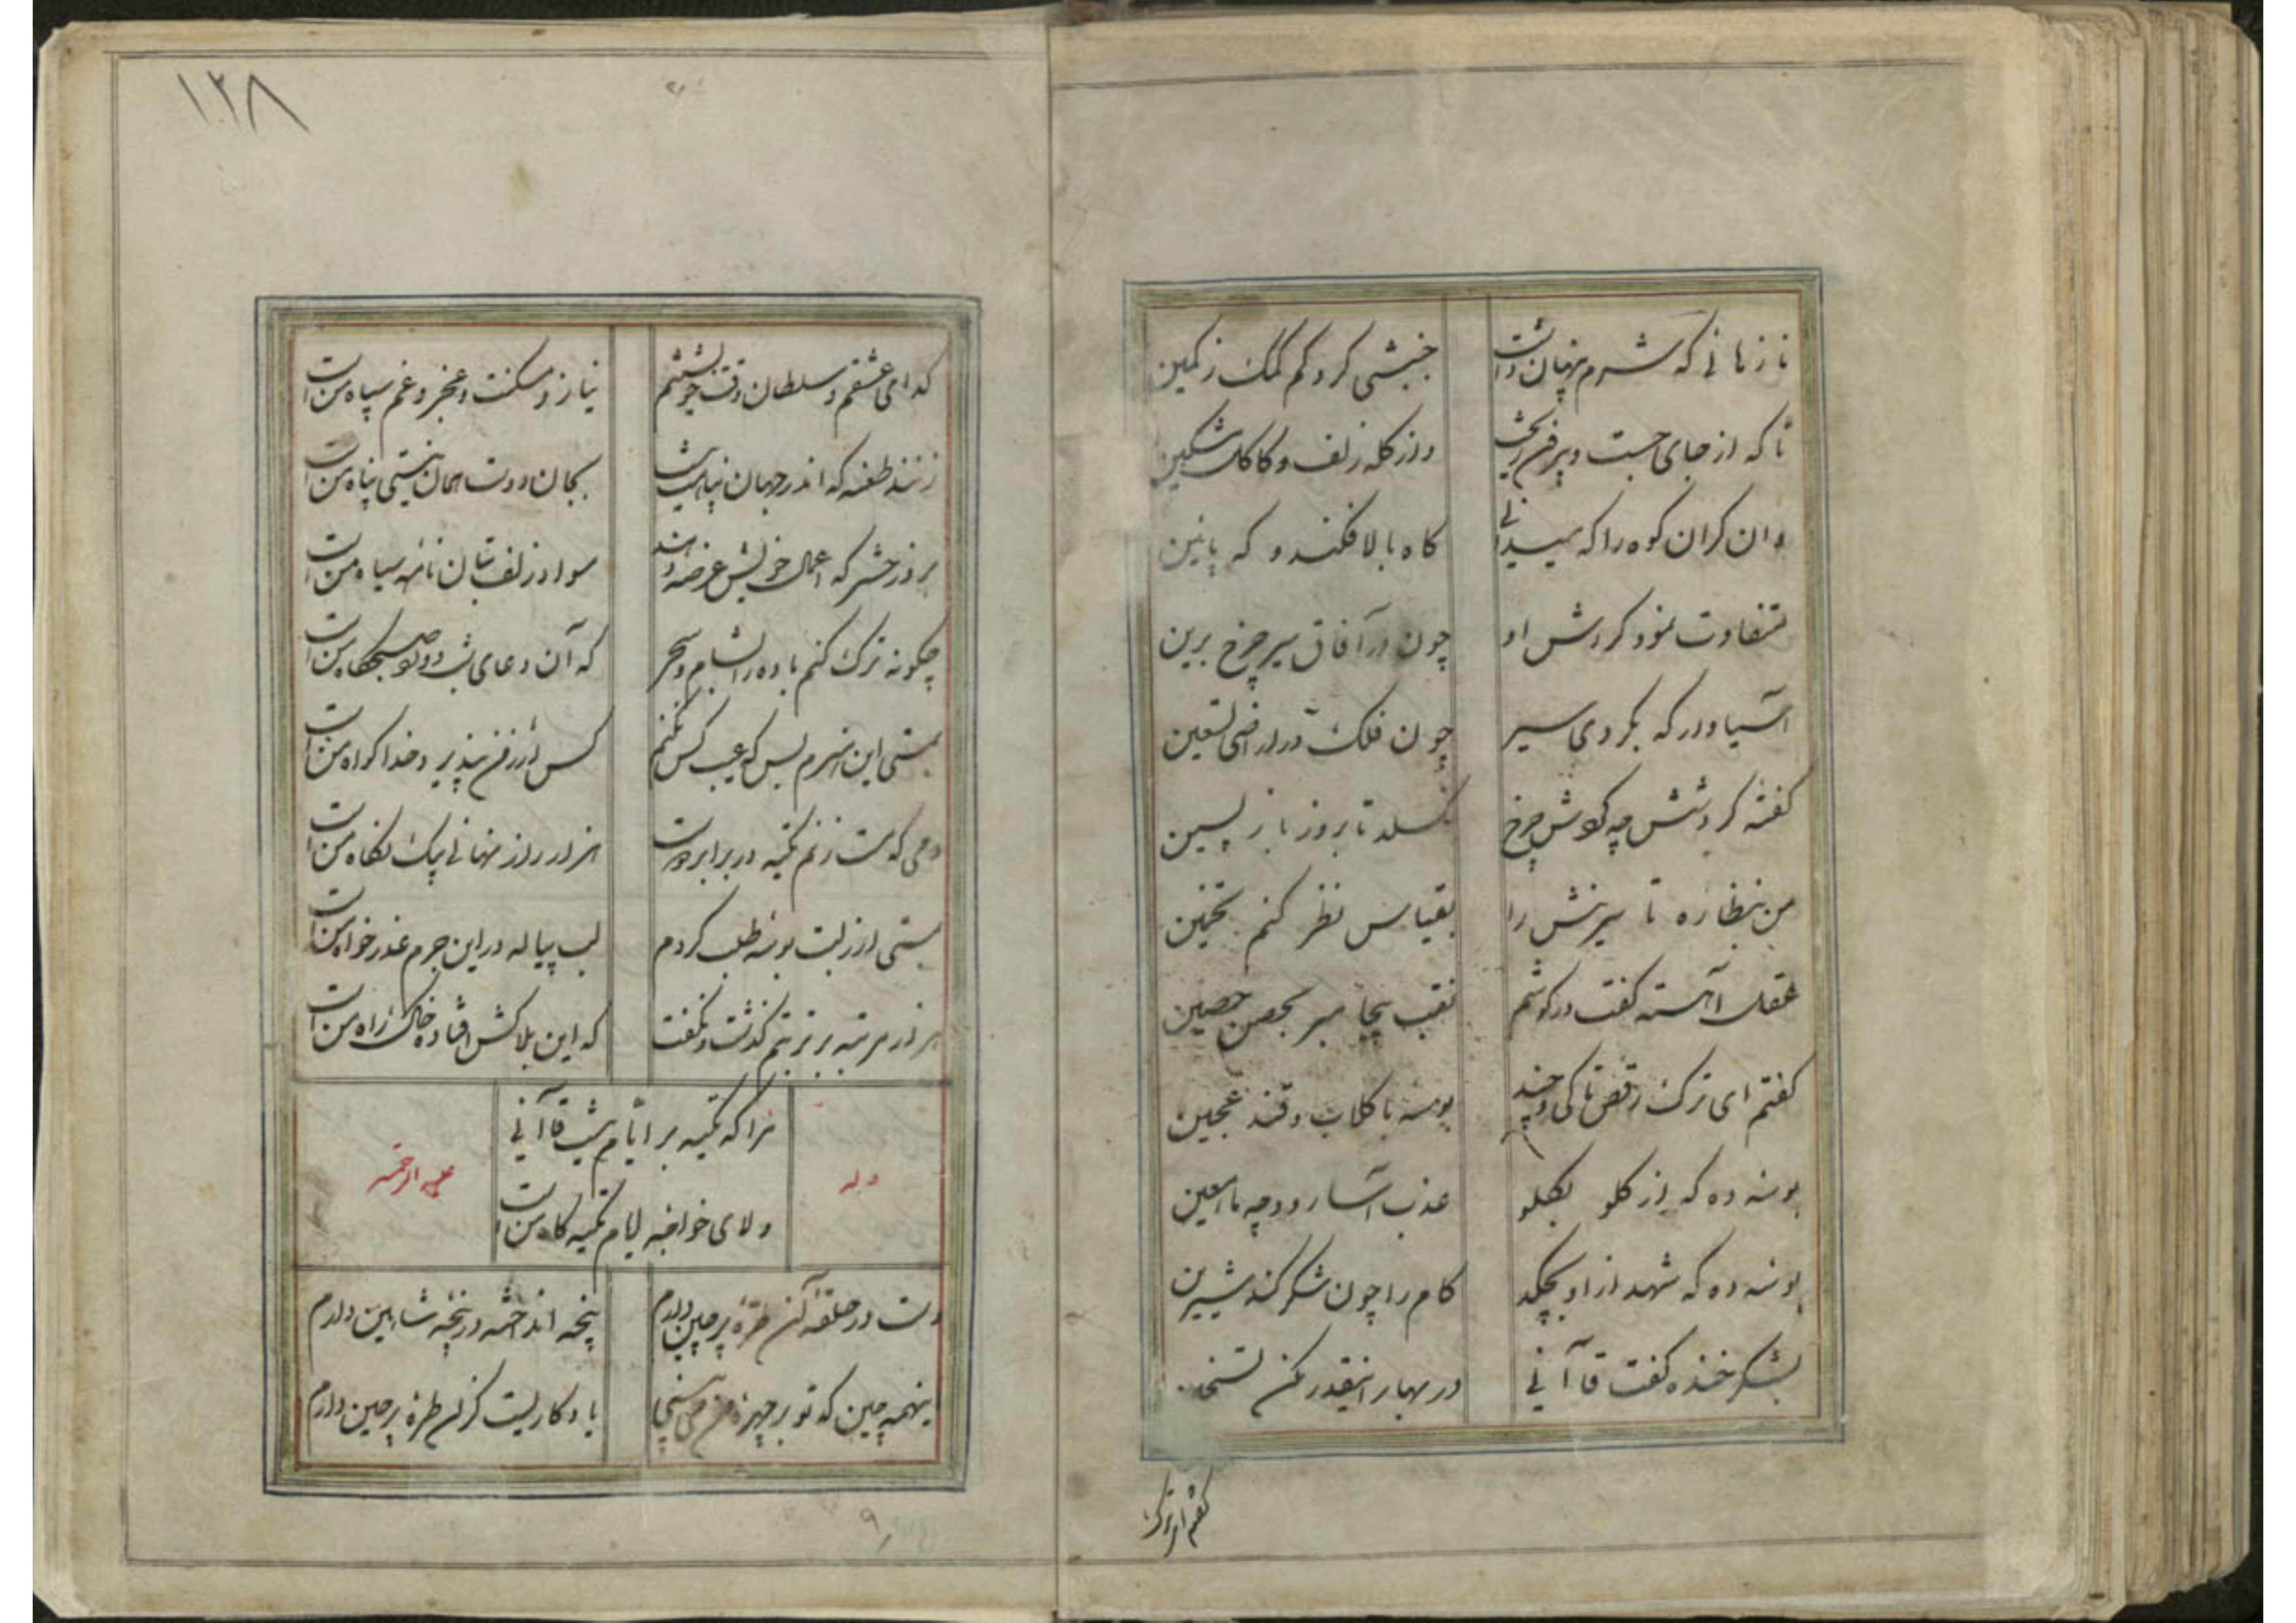 نازهائی که شرم پنهان داشت
جنبشی کرد کم کمک ز کمین
تا که از جای جست و پرفن ریخت
واز کله زلف و کاکل مشکین
وان کران کوه را که میدانی
کاه بالا فکند و که پائین
متفاوت نمود کردش او
چون در آفاق سیر چرخ برین
آسیاوار که بکردی سیر
چون فلک در اراضی تسعین
کفتم کردشش چه کوشش چرخ
نکسلد تا بروز بازپسین
من بنظاره تا سرینش را
بقیاس نظر کنم تخمین
عقل آهسته کفت در کوشم
نقب بیجا مبر بحصن حصین
کفتم ای ترک رقص تا کی و چند
بوسه با کلاب و قند عجین
بوسه ده که از کلو بکلو
عذب آسا رود چه ماء معین
بوسه ده که شهد از او بچکد
کام را چون شکر کند شیرین
بشکر خنده کفت قاآنی
در بهار اینقدر مکن تسخین
کفتم ای ترک
۱۲۸
کدای عشقم و سلطان وقت خویشتنم
نیاز و مسکنت و عجز و غم سپاه من است
زنند طعنه که اندر جهان پناهت نیست
بجان دوست همان نیستی پناه من است
بروز حشر که اعمال خویش عرضه دهند
سواد زلف بتان نامه سیاه من است
چکونه ترک کنم باده را بشام و سحر
که آن دعای شب و ورد صبحکاه من است
بمستی این هنرم بس که عیب کس نکنم
کس ار ز من نپذیرد خدا کواه من است
دمی که مست زنم تکیه در برابر دوست
هزار راز نهانی بیک نکاه من است
بمستی ار ز لبت بوسه طلب کردم
لب پیاله در این جرم عذرخواه من است
هزار مرتبه بر تربتم کذشت و نکفت
که این بلاکش افتاده خاک راه من است
مرا که تکیه بر ایام نیست قاآنی
ولای خواجه ایام تکیه کاه من است
وله
علیه الرحمه
دست در حلقه آن طره پرچین دارم
پنجه انداخته در پنجه شاهین دارم
اینهمه چین که تو بر چهره من می بینی
یادکاریست کزان طره پرچین دارم